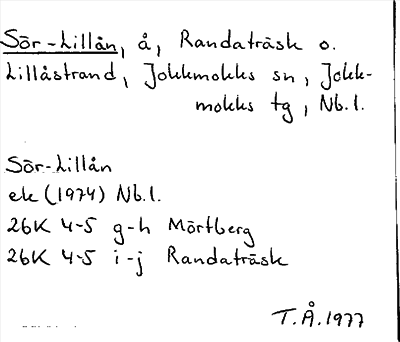 Sör-Lillån, å, Randaträsk o.
Lillåstrand, Jokkmokks sn, Jokk-
mokks tg, Nb.l.
Sör-Lillån
ek (1974) Nb.l.
26K 4-5 g-h Mörtberg
26K 4-5 i-j Randaträsk
T.Å.1977